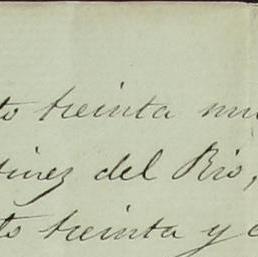 to treinta mi
tinez del Rio,
to treinta y c